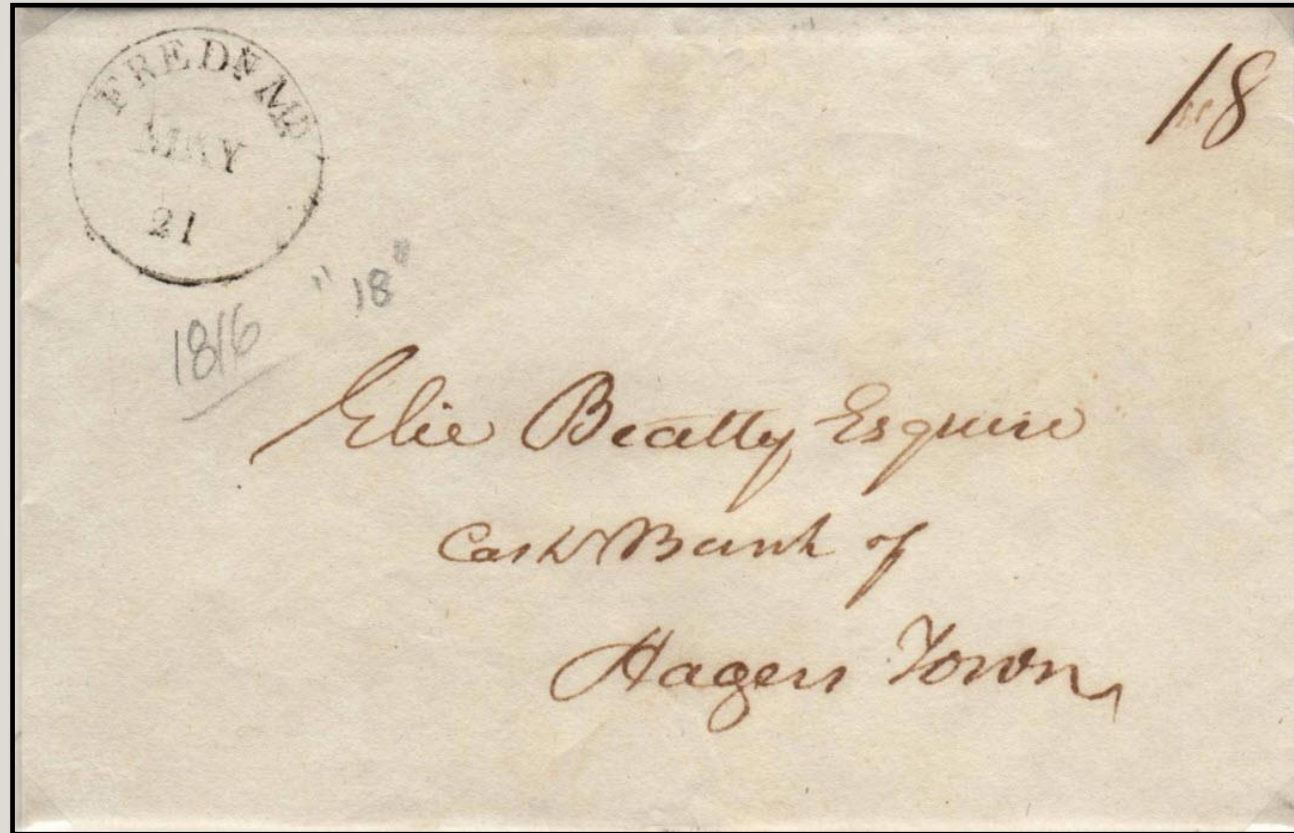 FREDK MD
MAY
21
18
"18"
1816
Elie Beatty Esquire
Cashr Bank of
Hagers Town